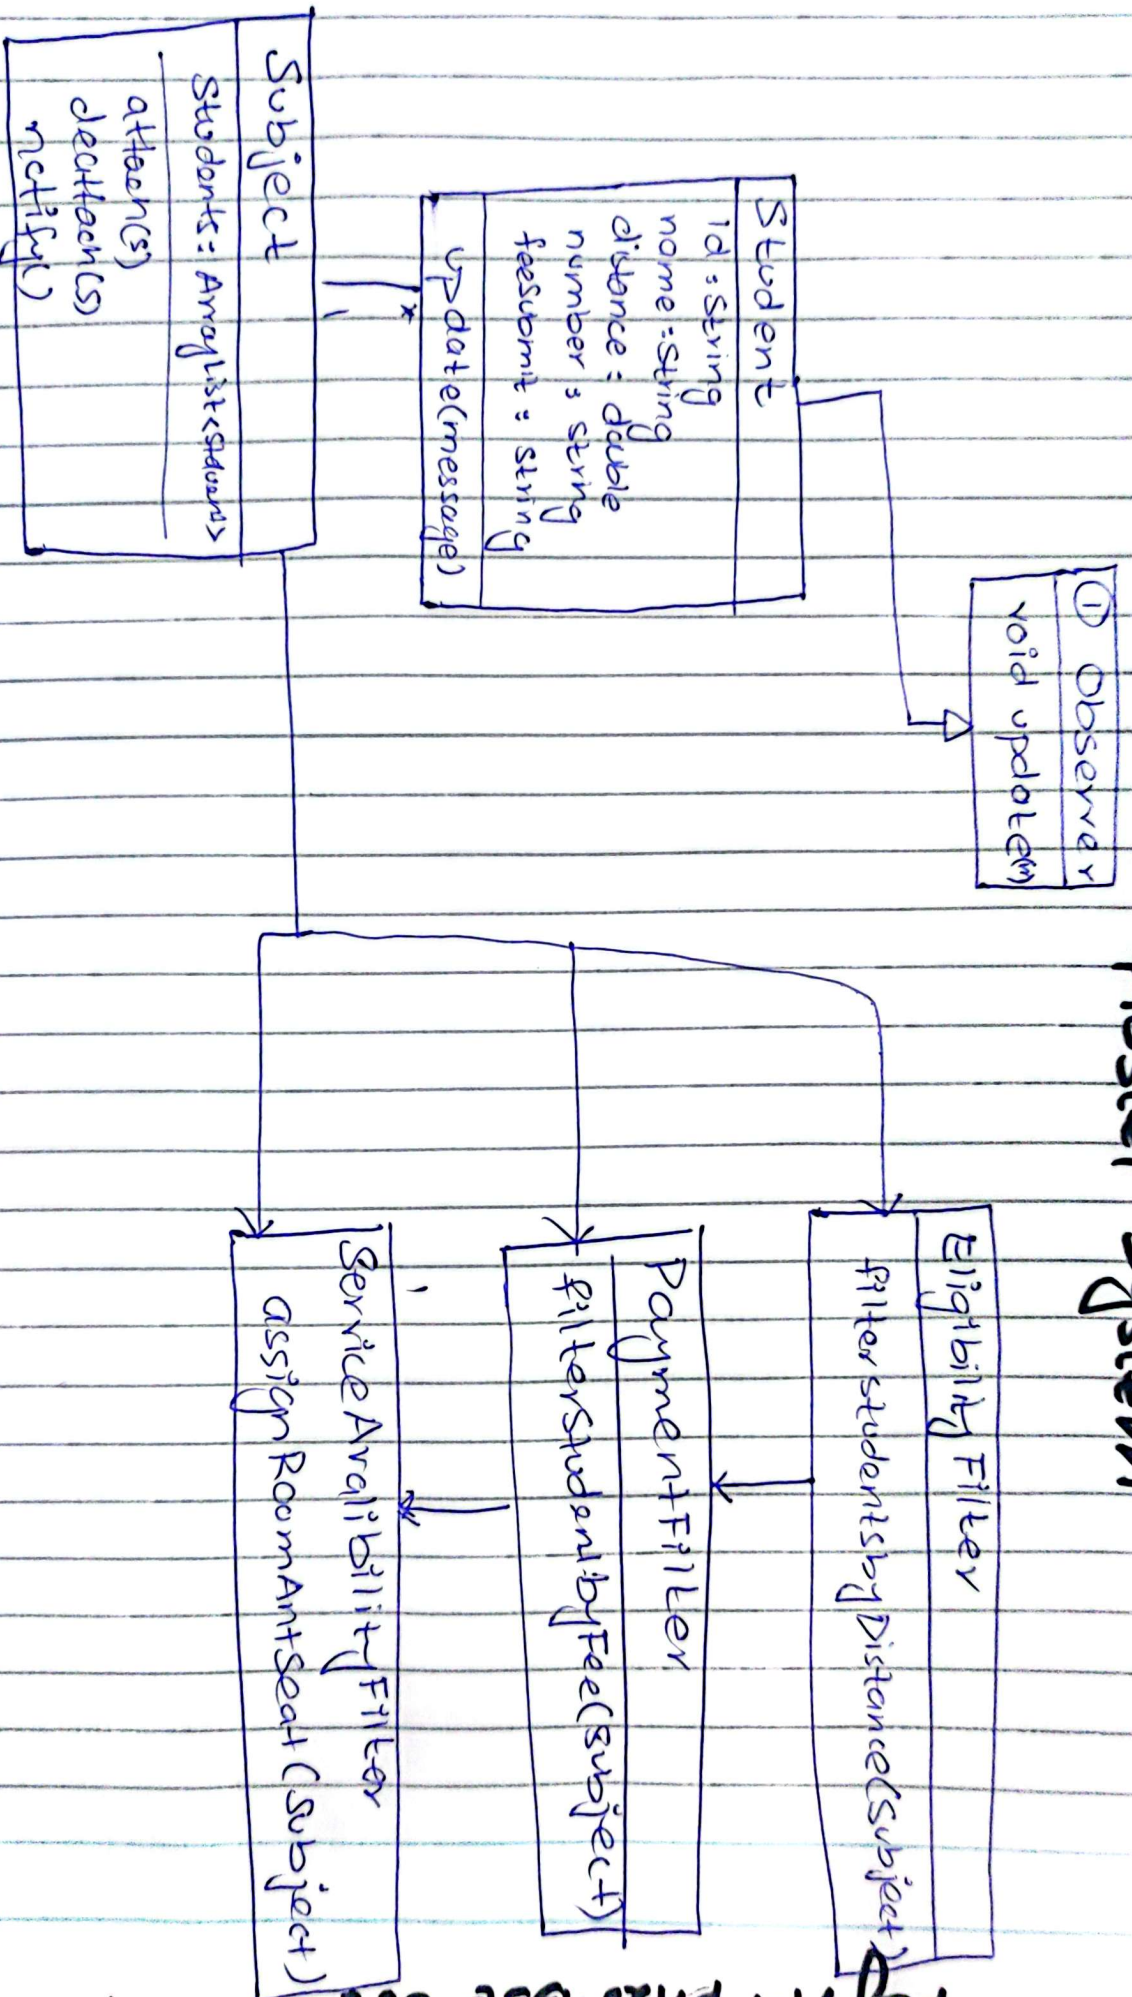 ① Observer
void update(m)
Student
id : String
name : string
distance : double
number : string
feesubmit : string
update(message)
*
1
Subject
Students : ArrayList<Student>
attach(s)
deattach(s)
notify()
EligibilityFilter
filterstudentsbyDistance(subject)
PaymentFilter
filterStudentbyFee(subject)
ServiceAvalibilityFilter
assignRoomAntSeat(subject)